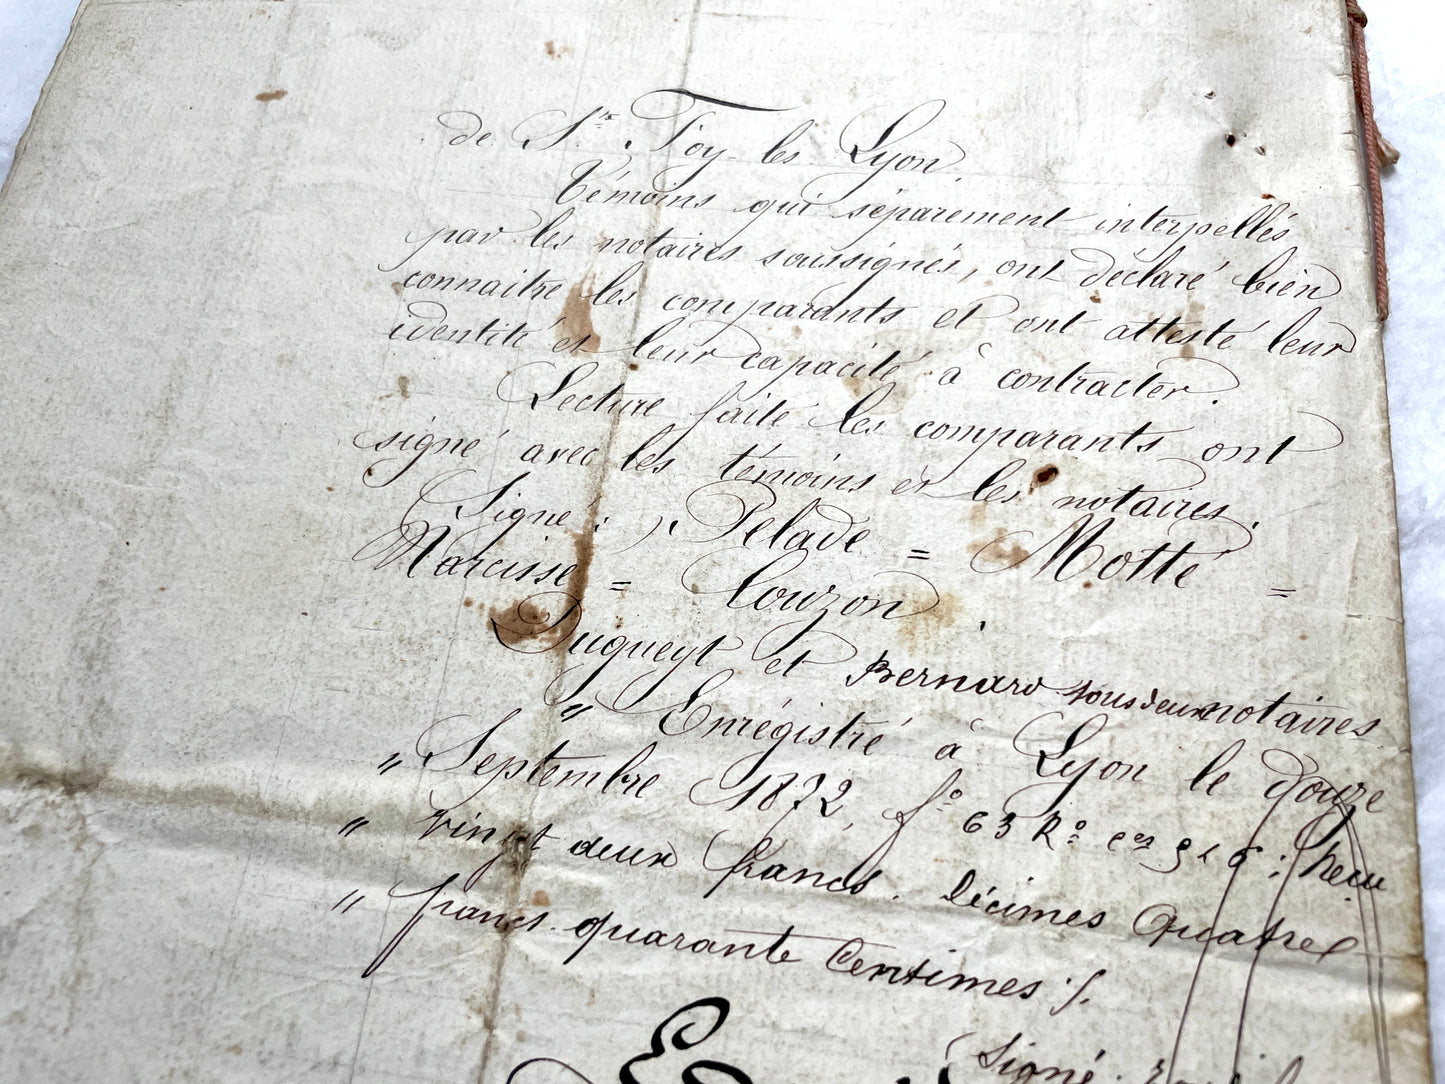 de Ste Foy-les-Lyon.
Témoins qui séparément interpellés
par les notaires soussignés, ont déclaré bien
connaitre les comparants et ont attesté leur
identité et leur capacité à contracter.
Lecture faite les comparants ont
signé avec les témoins et les notaires.
(Signé:) Pelade = Motte =
Narcisse = Couzon.
Dugueyt et Bernard tous deux notaires
" Enrégistré à Lyon le douze
" Septembre 1872, fo 63 Ro ces 5 et 6: Reçu
" vingt deux francs. Décimes Quatre
" francs quarante Centimes ./.
(Signé: